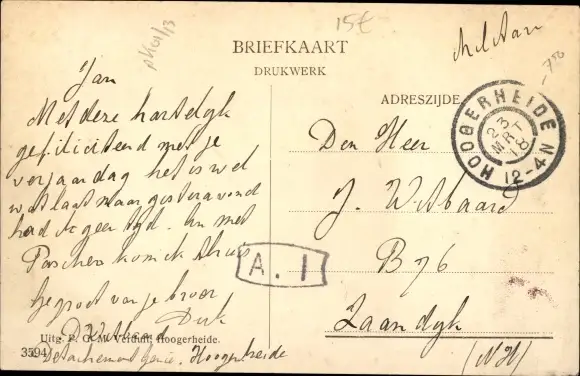 15€
BRIEFKAART
DRUKWERK
ADRESZIJDE.
HOOGERHEIDE
23 MRT 18
12-4N
Jan
Met deze hartelijk
gefiliciteerd met je
verjaardag het is wel
wat laat maar gisteravond
had ik geen tijd. en met
Paschen kom ik thuis
Gegroet van je broer
Dirk
D. Witbaard
Detachement Genie. Hoogerheide
Den Heer
J. Witbaard
B 76
Zaandijk
(NH)
A. 1
Uitg. F. C. M. Veraart, Hoogerheide.
3594